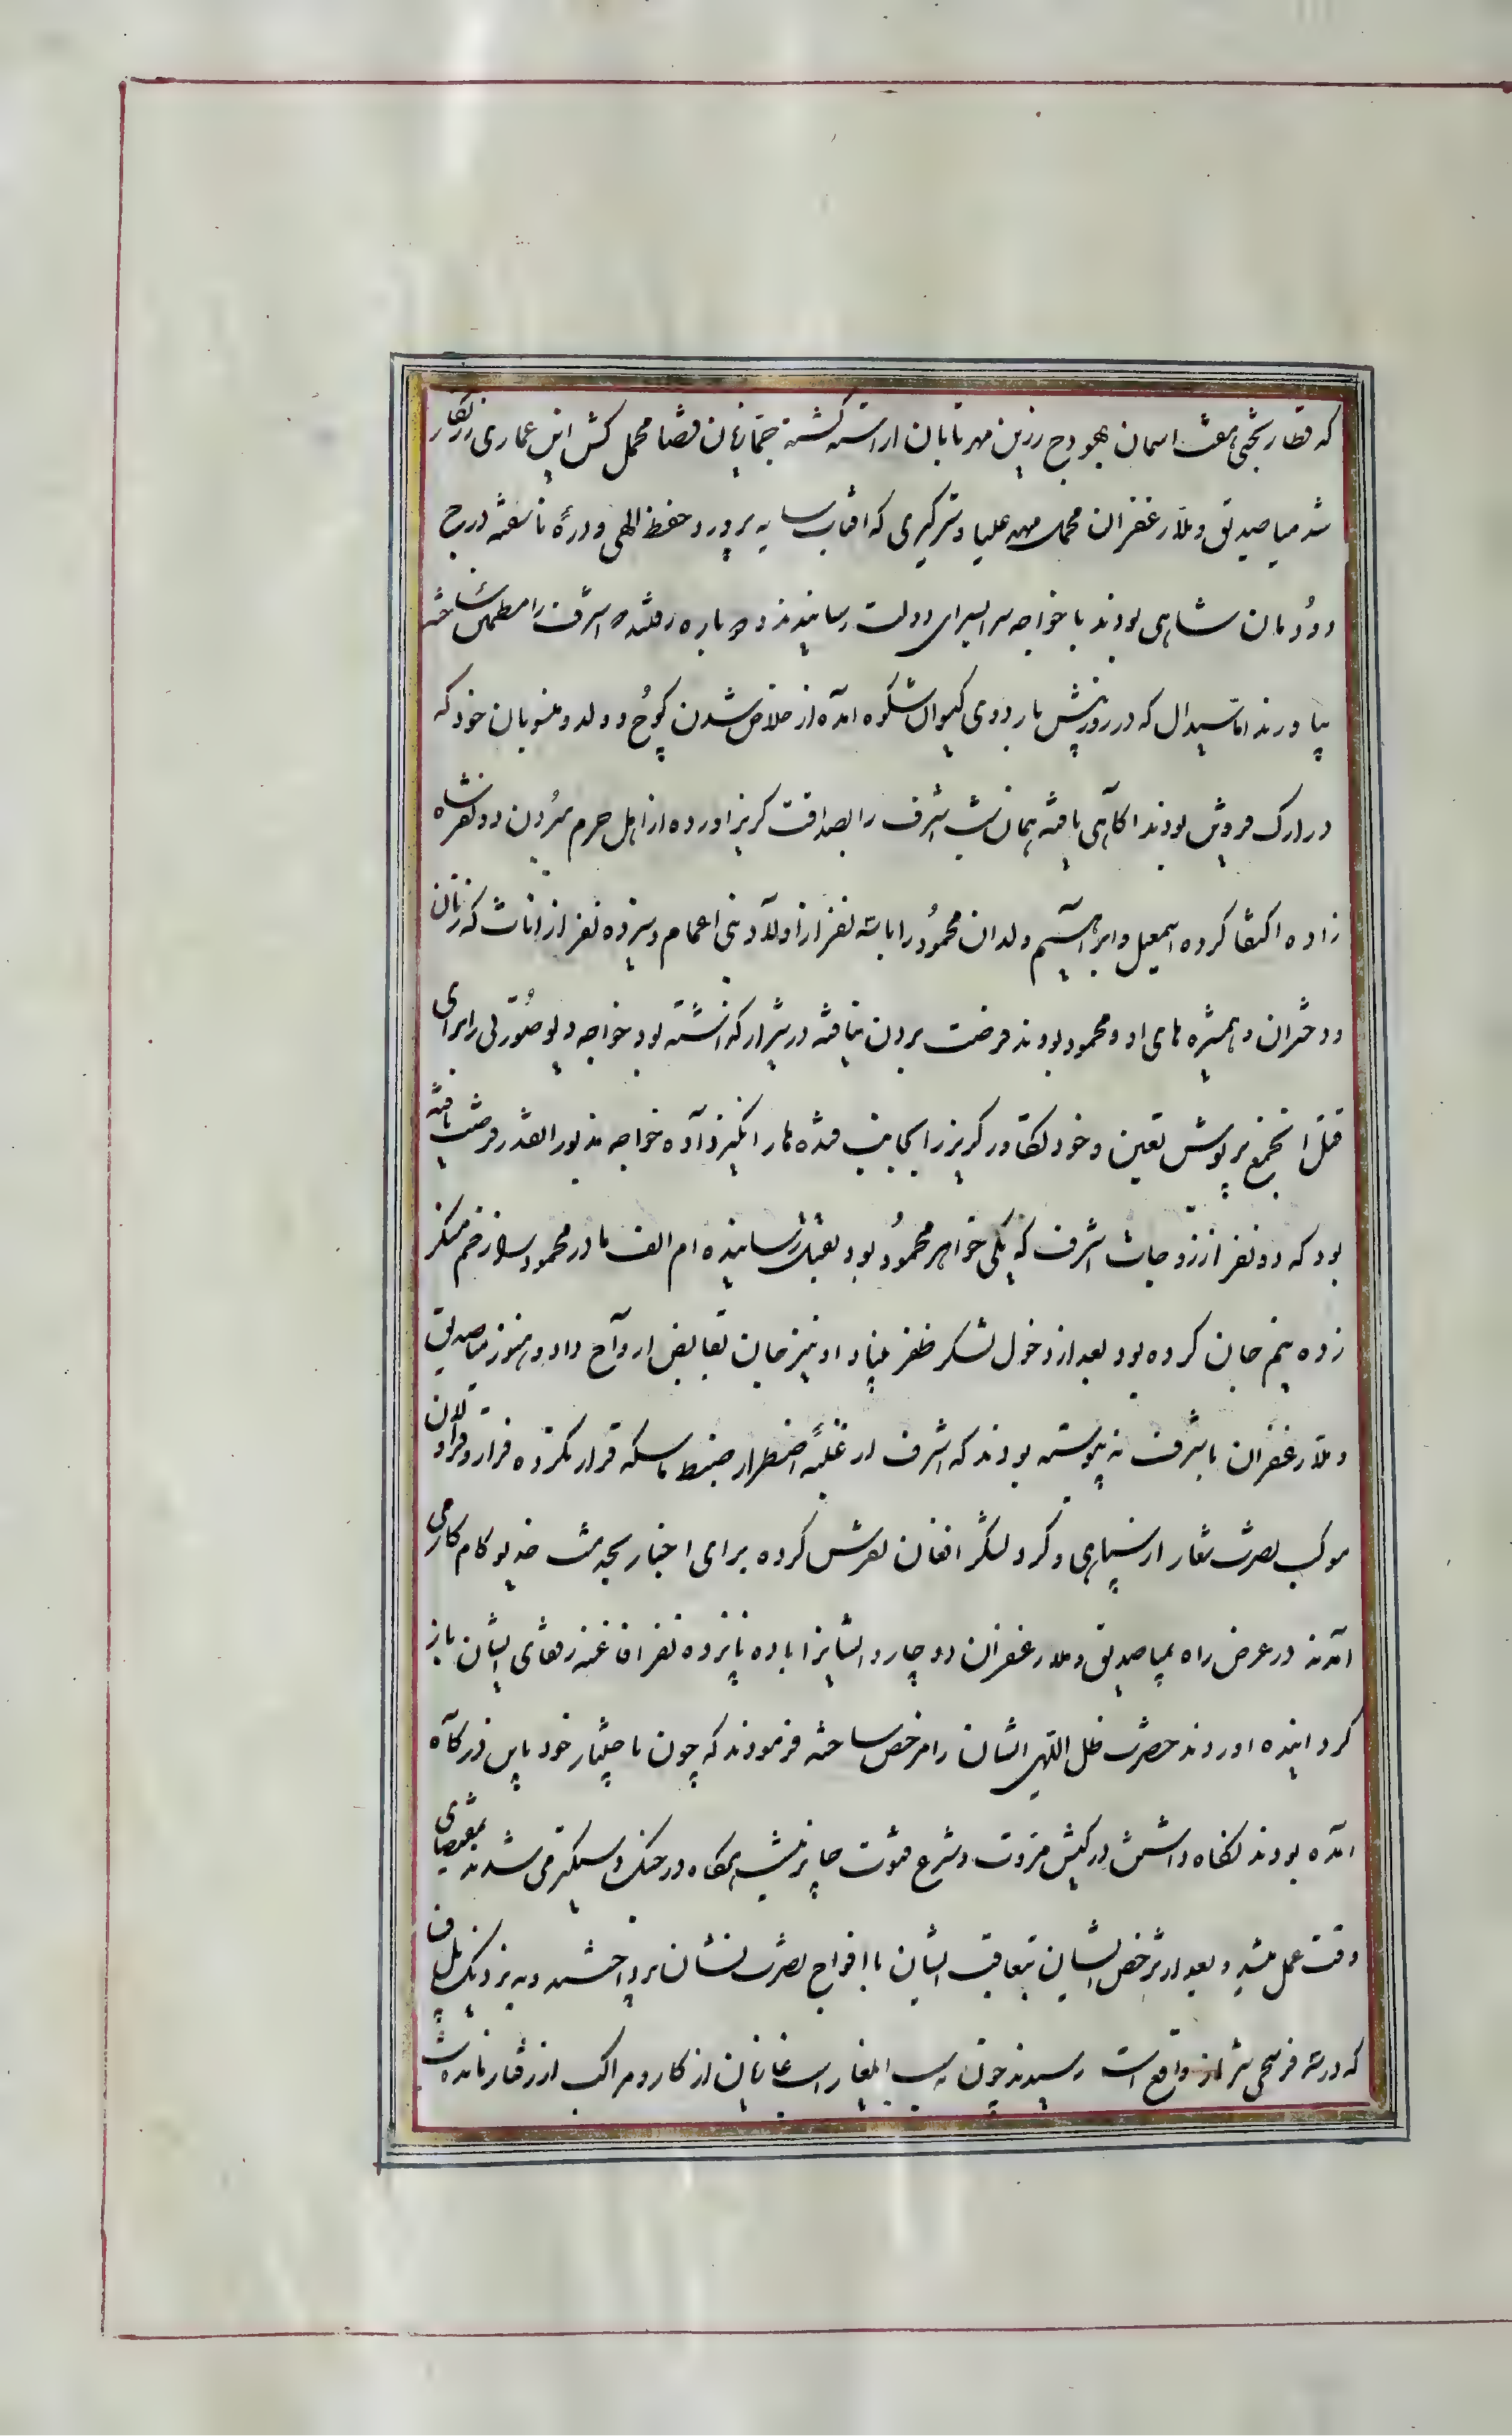 که قطار بختی هفت اسمان بهودج زرین مهر تابان اراسته کشته جمّازبان قضا محمل کش این عماری زرنکار
شد میاصیدیق و ملا زعفران محمل مهد علیا و ستر کبری که افتاب سایه پرورد حفظ الهی و درهٔ ناسفته درج
دودُمان شاهی بودند با خواجه سرا بسرای دولت رسانیدند دوباره رفتند و اشرف را مطمئن ساخته
بیاورند اما سیدال که در روز پیش باردوی کیوان شکوه امده از خلاص شدن کوچ و ولد و منسوبان خود که
در ارک فروش بودند اکاهی یافته همان شب اشرف را بصداقت کریز اورده از اهل حرم ببُردن دو نفر شاه
زاده اکتفا کرده اسمعیل و ابراهیم ولدان محمُود را با سه نفر از اولاد بنی اعمام و سیزده نفر از اناث که زنان
و دختران و همشیره های او و محمود بودند فرصت بردن نیافته در شیراز کذاشته بود خواجه دیو صُورتی را برای
قتل انجمع پریوش تعین و خود تکاور کریز را بجانب قندهار انکیز داده خواجه مذبور انقدر فرصت یافته
بود که دو نفر از زوجات اشرف که یکی خواهر محمُود بود بقتل رسانیده ام الف مادر محمود را زخم منکر
زده نیم جان کرده بود بعد از دخول لشکر ظفر بنیاد او نیز جان بقابض ارواح داد و هنوز میاصدیق
و ملا زعفران باشرف نه پیوسته بودند که اشرف از غلبهٔ اضطرار ضبط ماسکه قرار نکرده فرار و قراولان
موکب نصرت شعار از سیاهی و کرد لشکر افغان تفرس کرده برای اخبار بخدمت خدیو کام کار می
امدند در عرض راه بمیا صیدیق و ملا زعفران دوچار و ایشانرا با ده پانزده نفر افاغنه رفقای ایشان باز
کردانیده اوردند حضرت ظل اللهی ایشان را مرخص ساخته فرمودند که چون باختیار خود باین درکاه
امده بودند نکاه داشتن در کیش مروت و شرع فتوت جایز نیست هرکاه در جنک دستکیر می شدند بمقتضای
وقت عمل میشد و بعد از ترخص ایشان بتعاقب ایشان با افواج نصرت نشان پرداخته و به نزدیک پل فسا
که در سه فرسخی شیراز واقع است رسیدند چون به سبب ایلغار اسب غازیان از کار و مراکب از رفتار مانده